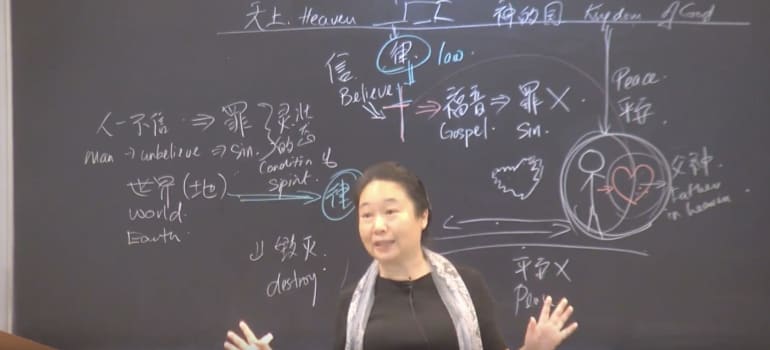 天上. Heaven
神的国 Kingdom of God
信
律
100
Believe
福音 ⇒ 罪 X
Gospel. Sin.
Peace.
平安
人—不信 ⇒ 罪
灵
man → unbelieve → sin.
Condition of
spirit.
世界(地)
律
World.
Earth.
父神.
Father
in heaven
毁灭
destroy.
平安 X